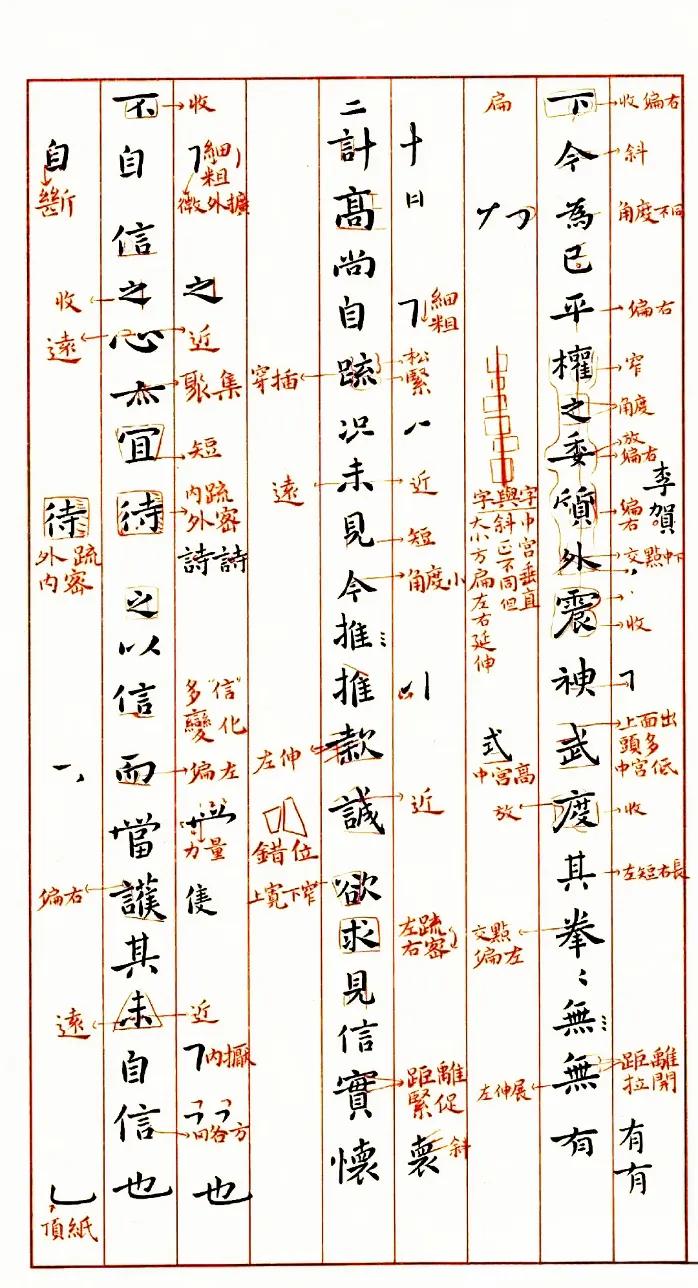 收 偏右
斜
角度不同
偏右
窄
角度
放
偏右
李賀
偏右
交點中下
收
上面出頭多中宮低
收
左短右長
距離拉開
有有
下今為已平權之委質外震神武度其拳〻無無有
扁
字與字
大小方扁左右延伸
斜正不同但
中宮垂直
式
中宮高
放
交點偏左
左伸展
十
日
細粗
松緊
近
短
角度小
近
左疏右密
距離緊促
褱
斜
二計高尚自疏況未見今推推款誠欲求見信實懷
穿插
遠
左伸
錯位
上寬下窄
收
細粗
微外擴
之
近
聚集
短
內疏外密
詩詩
多“信”變化
偏左
力量
隻
近
內擫
向各方
也
不自信之心亦宜待之以信而當護其未自信也
自
斷
收
遠
待
外疏內密
偏右
遠
頂紙